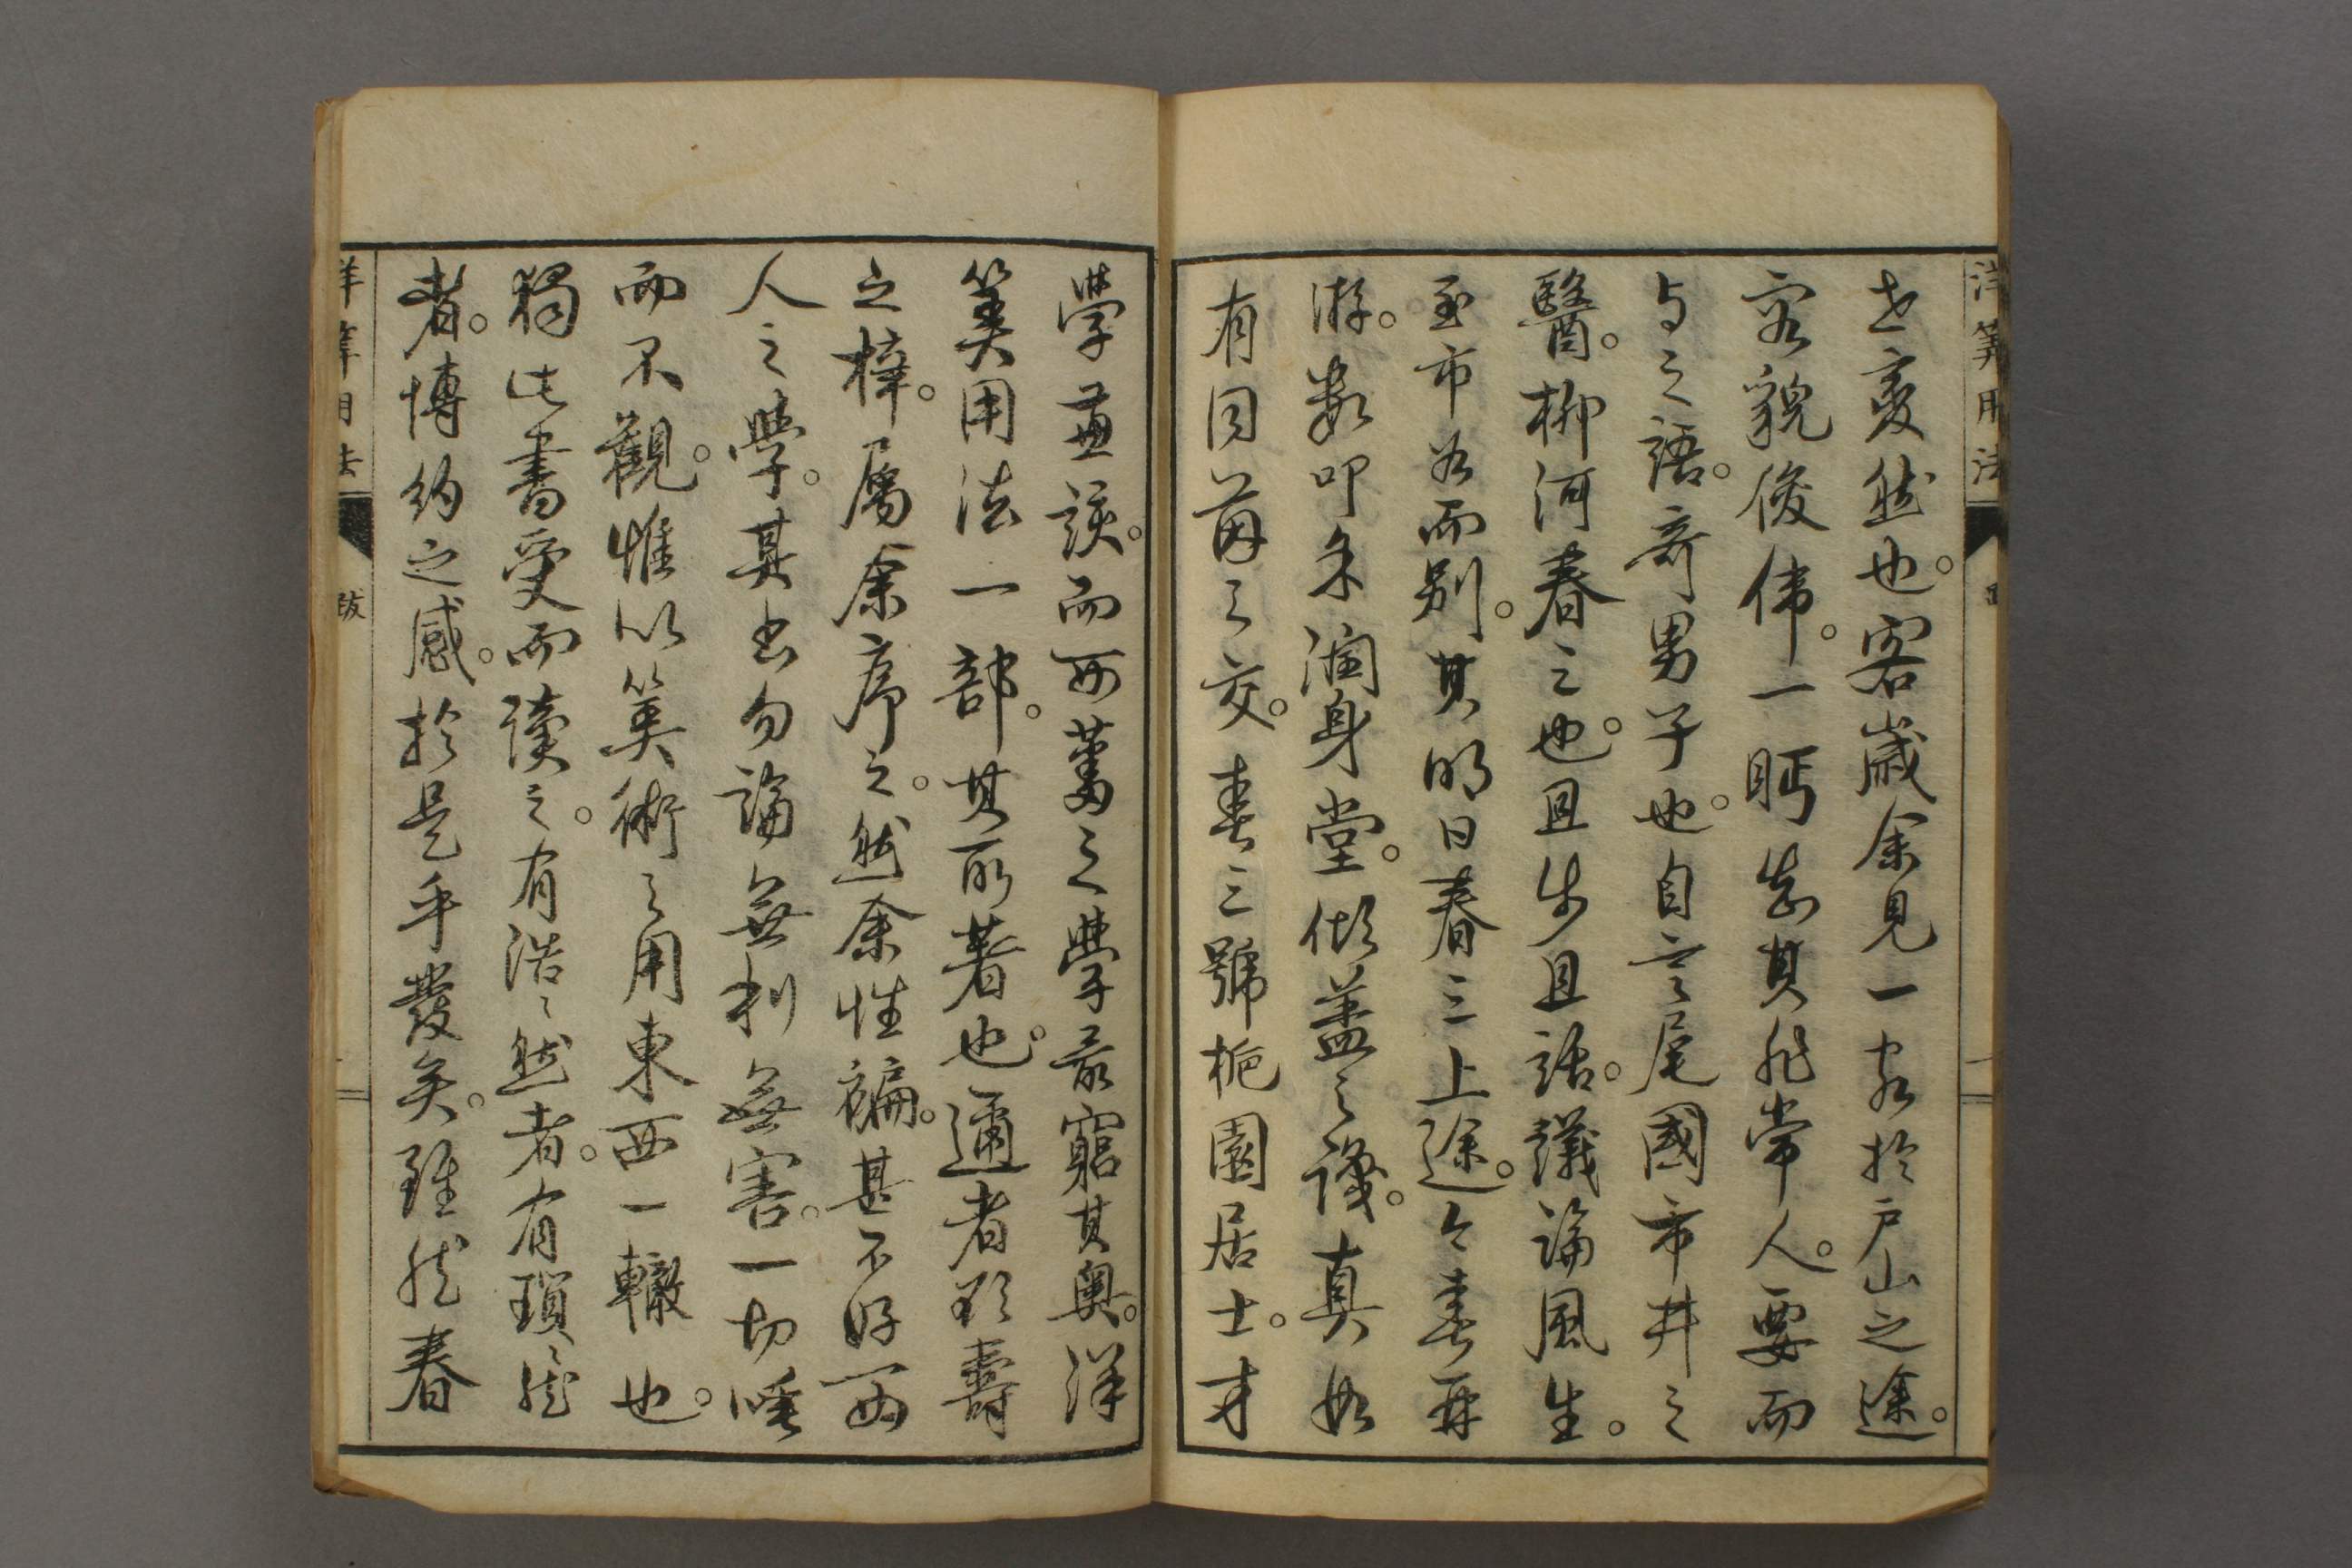 洋筭用法
世変然也。客歳余見一客於戸山之途。
容貌俊偉。一眄知其非常人。要而
与之語。奇男子也。自言尾國市井之
醫。柳河春三也。且歩且話。議論風生。
至市谷而別。其明日春三上途。今春再
游。数叩余潤身堂。傾蓋之誼。真如
有同苗之交。春三號梔園居士。才
學兼該。而西蕃之學最窮其奥。洋
筭用法一部。其所著也。邇者欲壽
之梓。属余序之。然余性褊。甚不好西
人之學。其書勿論無利無害。一切唾
而不觀。惟以筭術之用東西一轍也。
獨此書受而讀之。有浩々然者。有瑣々然
者。博約之感。於是乎發矣。雖然春
洋筭用法
跋